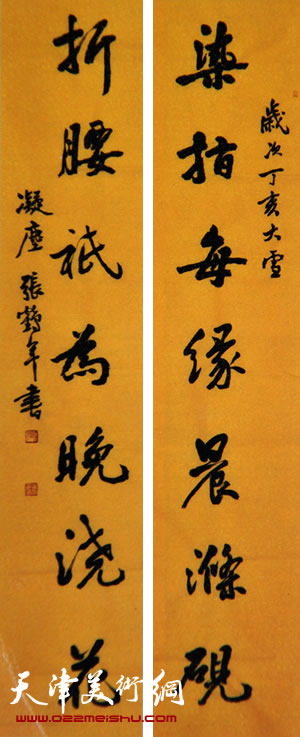 歲次丁亥大雪
染指每緣晨滌硯
折腰祇為晚澆花
凝塵 張鶴年書
天津美術網
www.022meishu.com